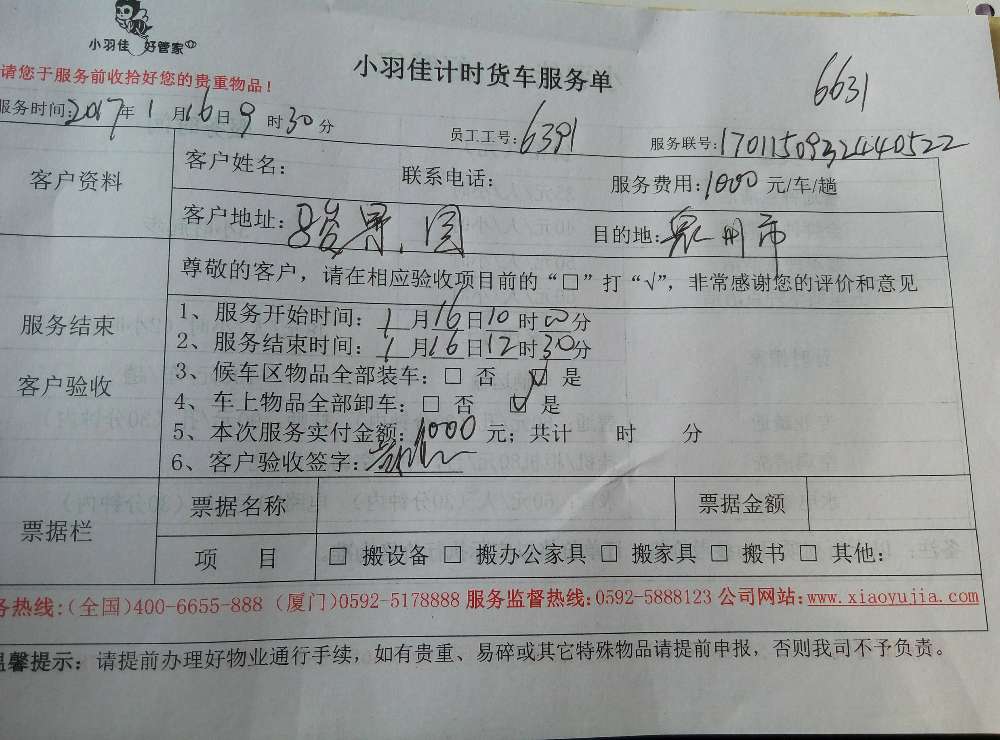 小羽佳 好管家
小羽佳计时货车服务单
6631
请您于服务前收拾好您的贵重物品！
服务时间:2017年1月16日9时30分
员工工号:6391
服务联号:1701150932440522
客户资料
客户姓名：
联系电话：
服务费用:1000元/车/趟
客户地址:骏景园
目的地:泉州市
尊敬的客户，请在相应验收项目前的“□”打“√”，非常感谢您的评价和意见
服务结束
客户验收
1、服务开始时间：1月16日10时00分
2、服务结束时间：1月16日12时30分
3、候车区物品全部装车：□ 否 ☑ 是
4、车上物品全部卸车：□ 否 ☑ 是
5、本次服务实付金额：1000元；共计 时 分
6、客户验收签字：
票据栏
票据名称
票据金额
项 目
□ 搬设备 □ 搬办公家具 □ 搬家具 □ 搬书 □ 其他：
务热线:(全国)400-6655-888 (厦门)0592-5178888 服务监督热线:0592-5888123 公司网站:www.xiaoyujia.com
温馨提示：请提前办理好物业通行手续，如有贵重、易碎或其它特殊物品请提前申报，否则我司不予负责。